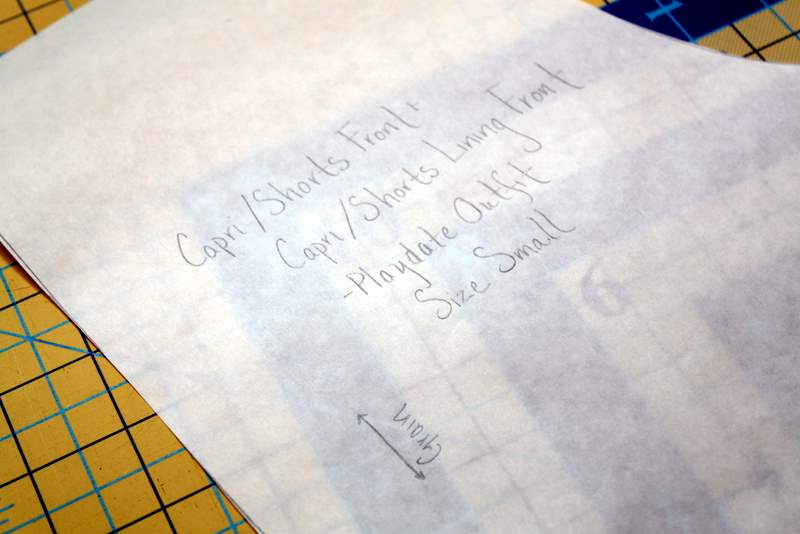 Capri/Shorts Front
Capri/Shorts Lining Front
-Playdate Outfit
Size Small
6
Grain